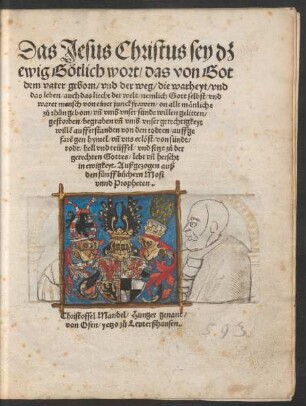 Das Jesus Christus sey dz
ewig Götlich wort/ das von Got
dem vater geborn/ vnd der weg/ die warheyt/ vnd
das leben/ auch das liecht der welt/ nemlich Gott selbst/ vnd
warer mensch von einer junckfrawen/ on alle mänlichs
zů thůn geborn/ vñ vmb vnser sünde willen gelitten/
gestorben/ begraben vñ vmb vnser gerechtigkeyt
willē aufferstanden von den todten/ auffge
faren gen hymel/ vñ vns erlöst/ von sünde/
todt/ hell vnd teüffel/ vnd sytz zů der
gerechten Gottes/ lebt vñ herscht
in ewigkeyt. Außgezogen auß
den fünff büchern Mosi
vnnd Propheten.
Christoffel Mandel/ Hunger genant/
von Ofen/ yetzo zů Leuterßhausen.
593